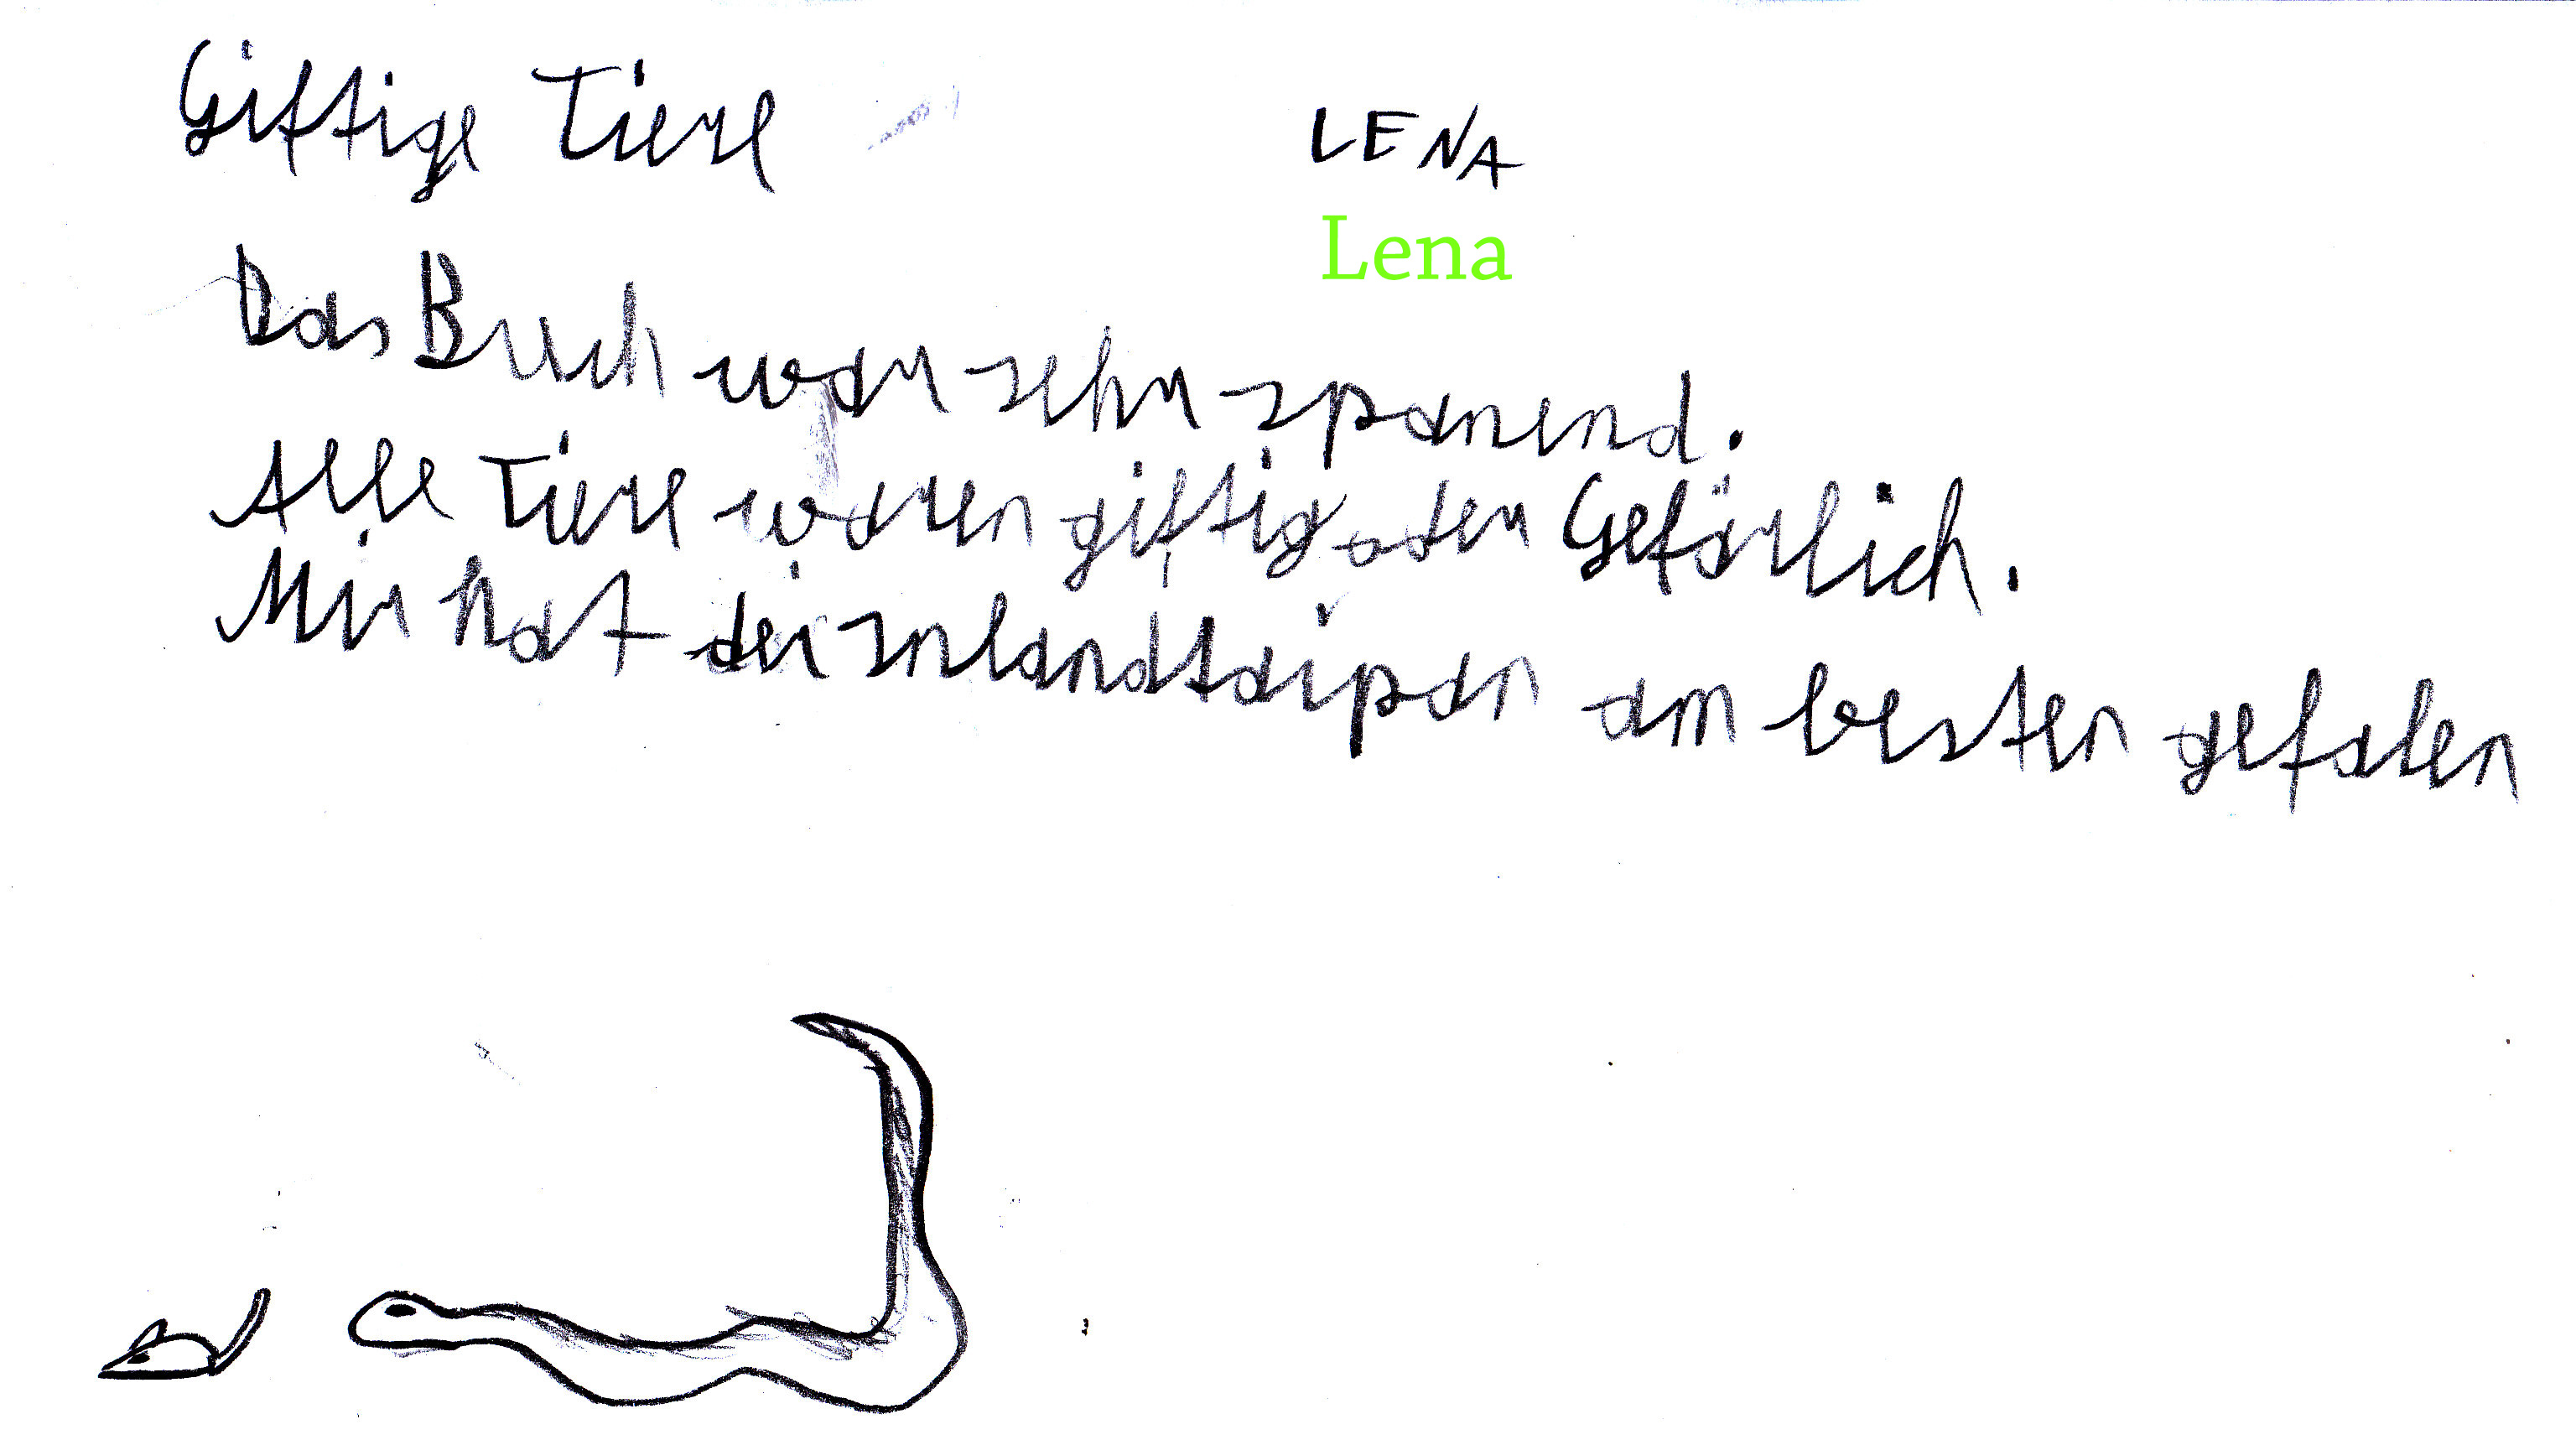 Giftige Tiere
LENA
Lena
Das Buch war sehr spanend.
Alle Tiere waren giftig oder Gefärlich.
Mir hat der inlandtaipan am besten gefalen